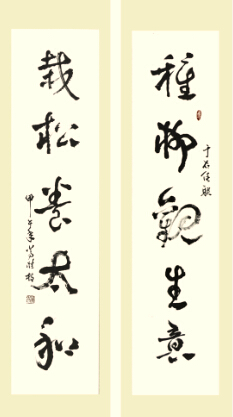 種柳觀生意
于右任联
栽松養太和
甲午年